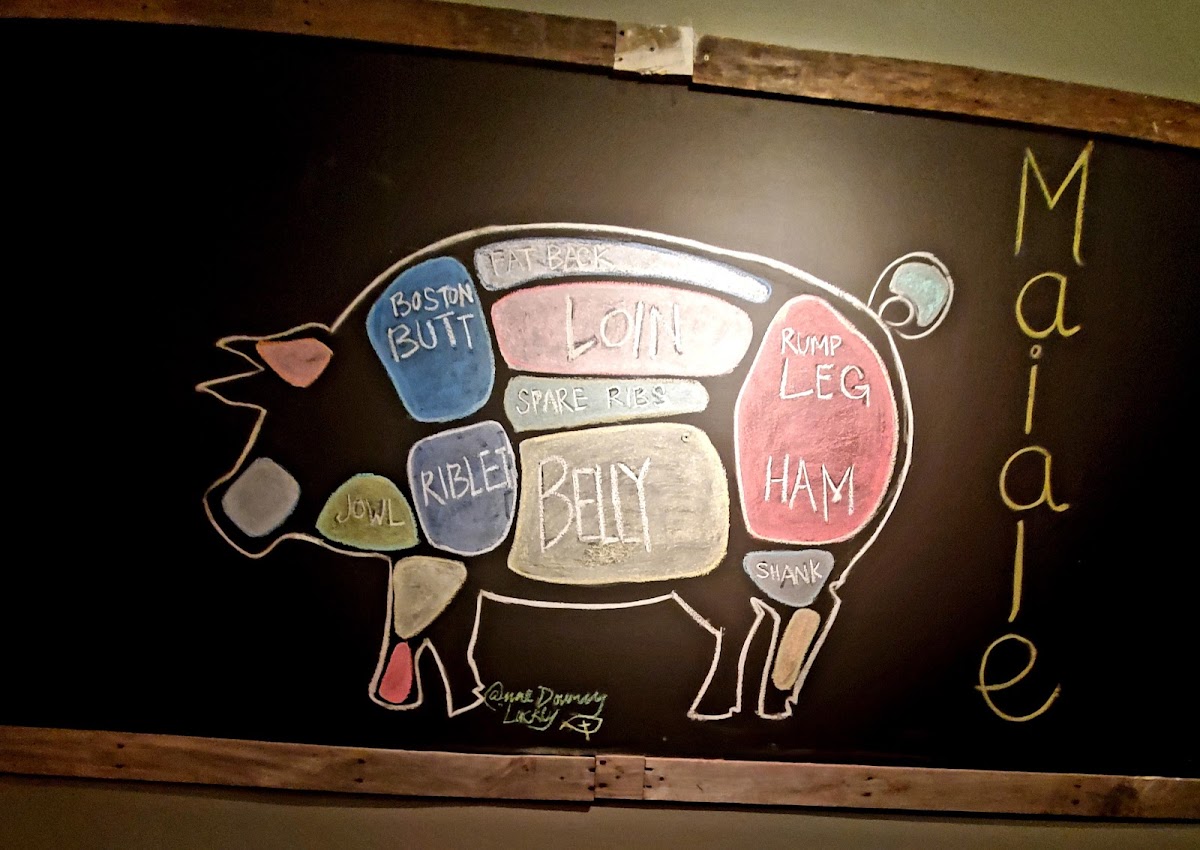 FAT BACK
BOSTON
BUTT
LOIN
RUMP
LEG
SPARE RIBS
HAM
RIBLET
BELLY
JOWL
SHANK
Maiale